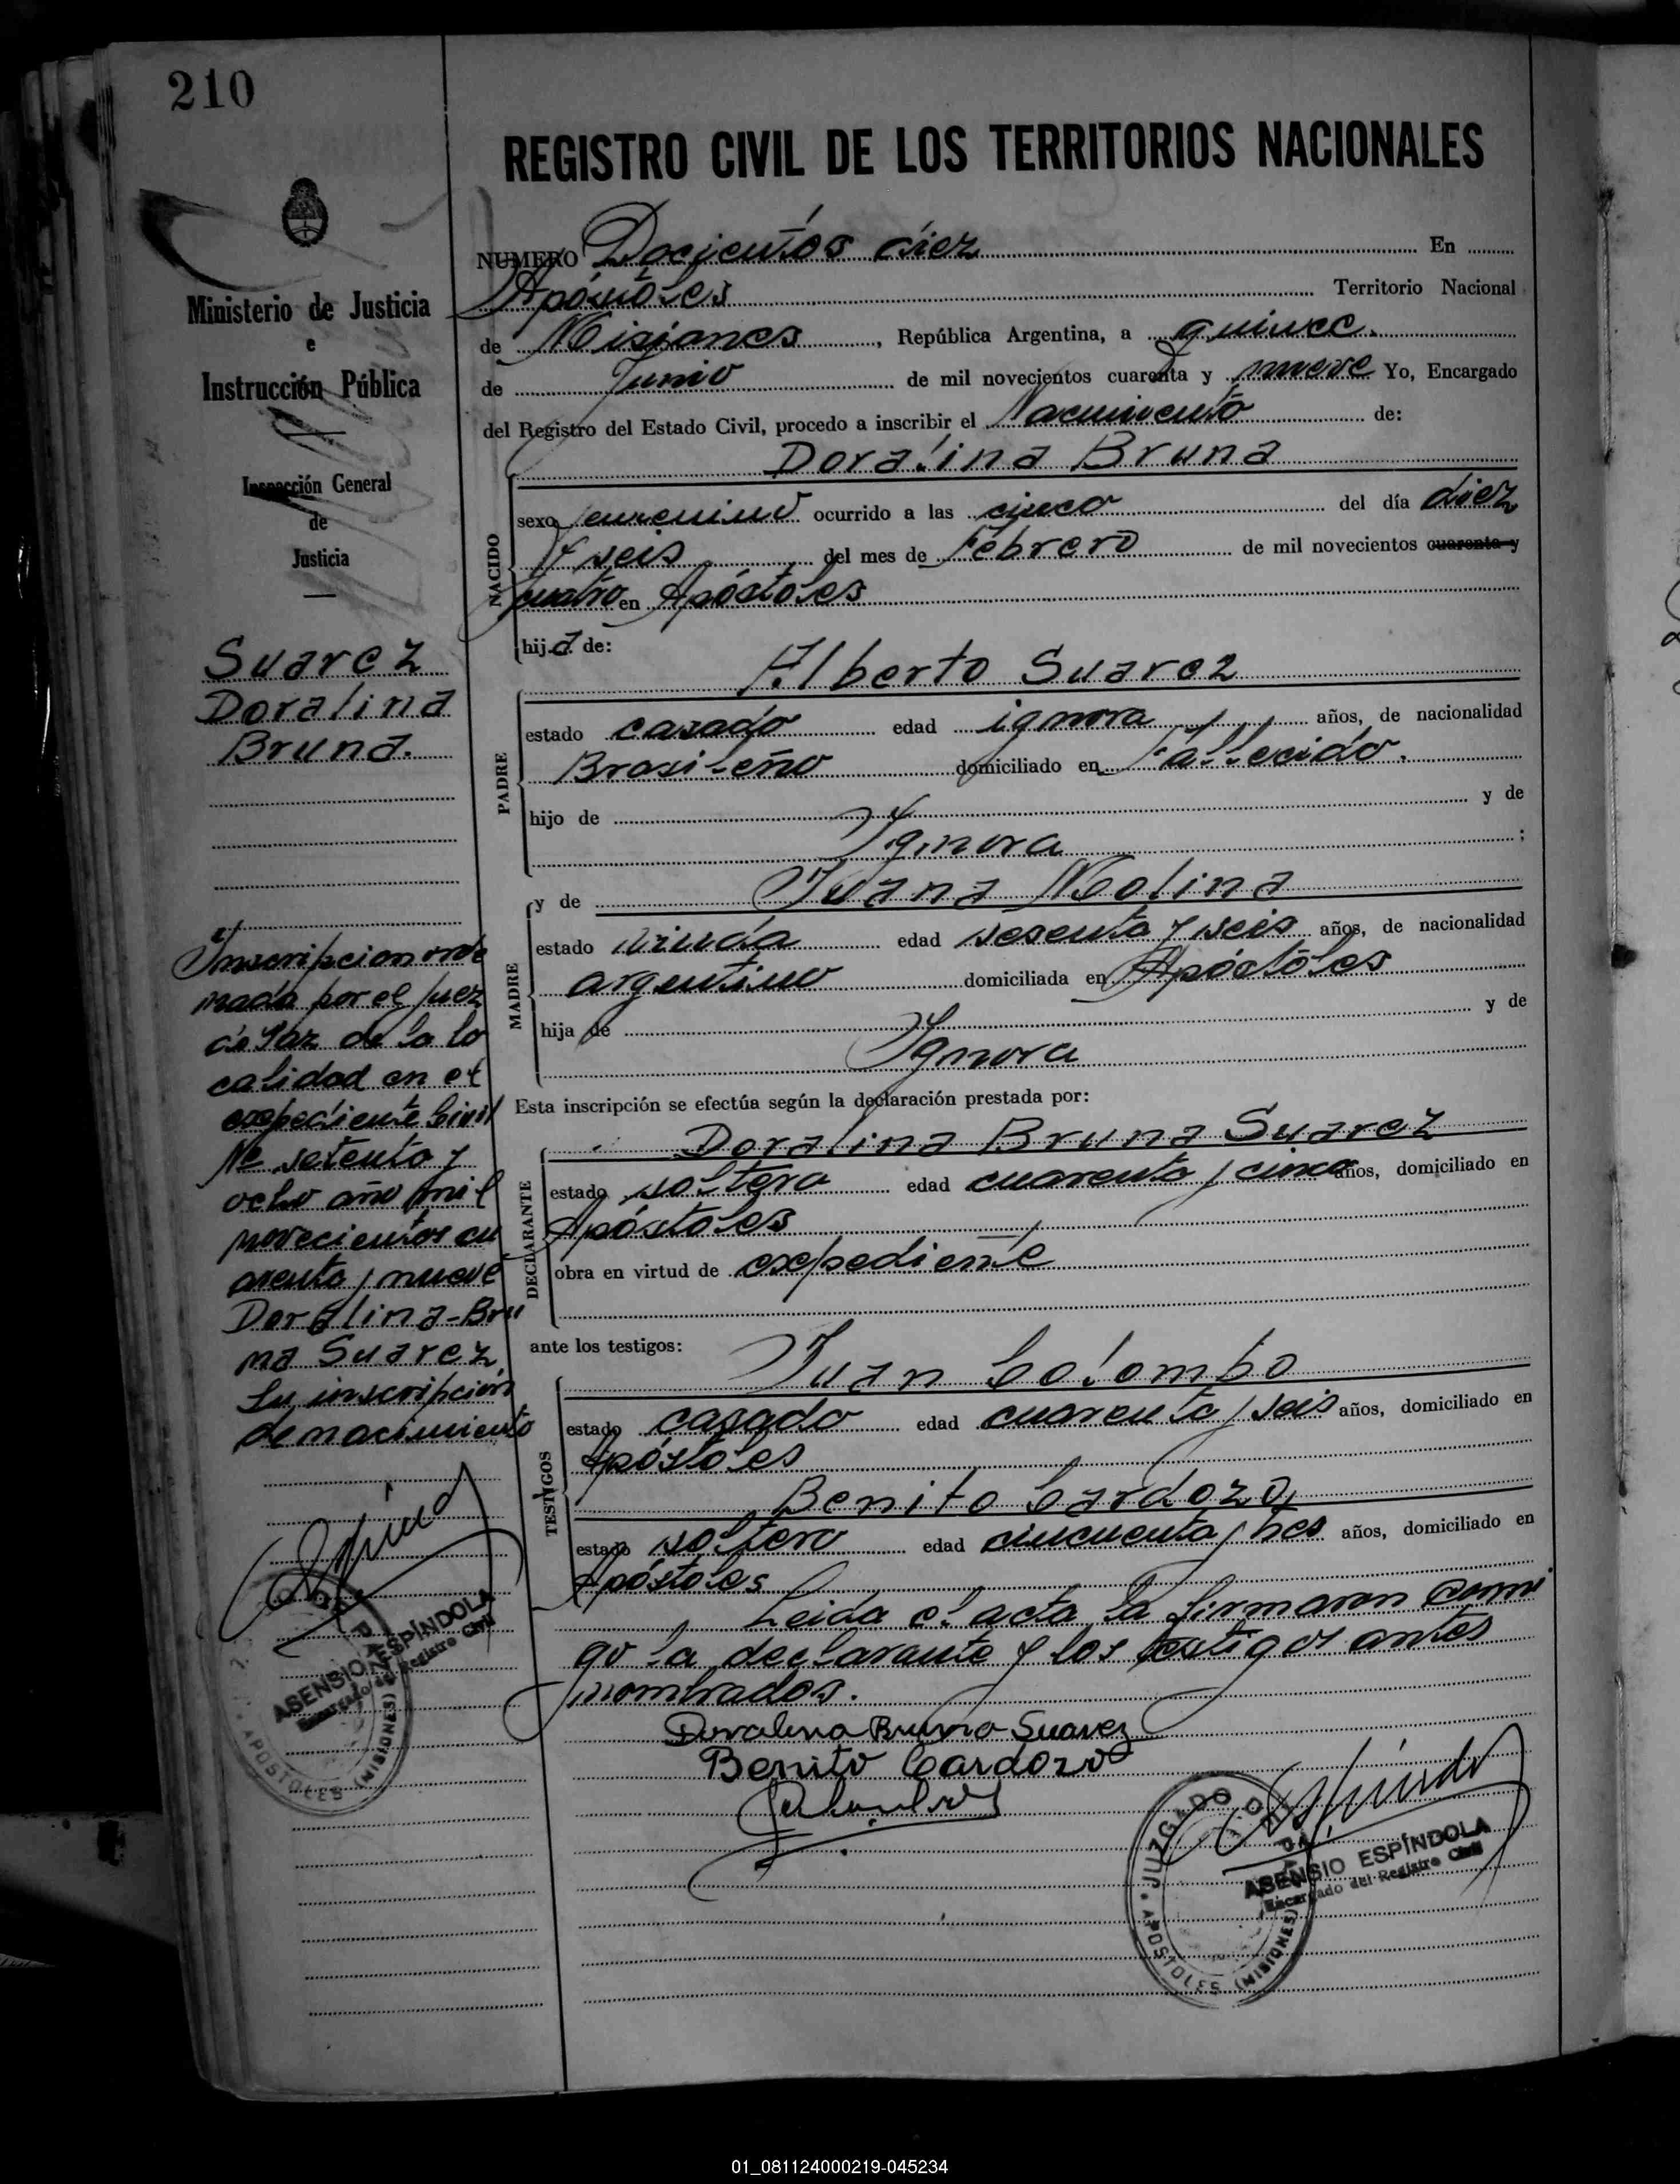 210
REGISTRO CIVIL DE LOS TERRITORIOS NACIONALES
Ministerio de Justicia
e
Instrucción Pública
Inspección General
de
Justicia
Suarez
Doralina
Bruna.
Inscripcion orde
nada por el Juez
de Paz de la lo
calidad en el
expediente Civil
Nº setenta y
ocho año mil
novecientos cu
arenta y nueve
Doralina-Bru
na Suarez
Su inscripción
de nacimiento
ASENSIO ESPÍNDOLA
Encargado del Registro Civil
APOSTOLES (MISIONES)
NUMERO Docientos diez En
Apóstoles Territorio Nacional
de Misiones, República Argentina, a quince.
de Junio de mil novecientos cuarenta y nueve Yo, Encargado
del Registro del Estado Civil, procedo a inscribir el Nacimiento de:
Doralina Bruna
NACIDO
sexo femenino ocurrido a las cinco del día diez
y seis del mes de Febrero de mil novecientos cuarenta y
cuatro en Apóstoles
hija de:
Alberto Suarez
PADRE
estado casado edad ignora años, de nacionalidad
Brasileño domiciliado en Fallecido.
hijo de y de
Ygnora ;
y de Juana Molina
MADRE
estado viuda edad sesenta y seis años, de nacionalidad
argentino domiciliada en Apóstoles
hija de y de
Ygnora
Esta inscripción se efectúa según la declaración prestada por:
Doralina Bruna Suarez
DECLARANTE
estado soltera edad cuarenta y cinco años, domiciliado en
Apóstoles
obra en virtud de expediente
ante los testigos:
Juan Colombo
TESTIGOS
estado casado edad cuarenta y seis años, domiciliado en
Apóstoles
Benito Cardozo,
estado soltero edad cincuenta y tres años, domiciliado en
Apóstoles
Leida el acta la firmaron conmi
go la declarante y los testigos antes
nombrados.
Doralina Bruna Suarez
Benito Cardozo
JUZGADO DE PAZ
ASENSIO ESPÍNDOLA
Encargado del Registro Civil
APOSTOLES (MISIONES)
01_081124000219-045234